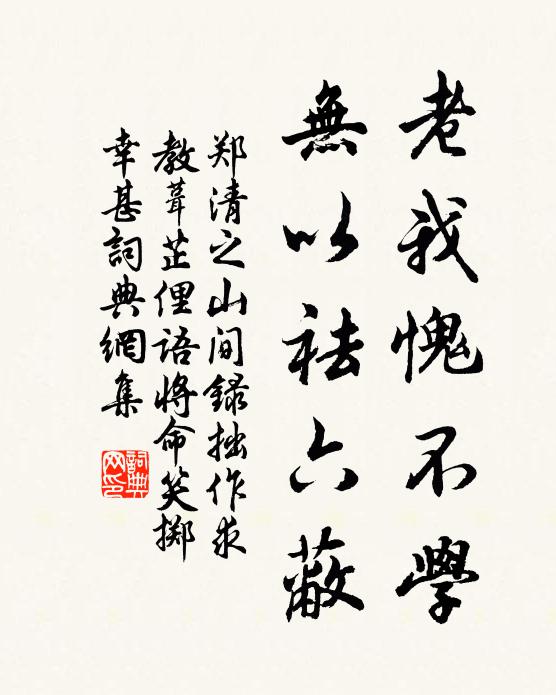 老我愧不學
無以祛六蔽
郑清之山间録拙作求
教葺芷俚语將命笑擲
幸甚詞典網集
詞典网印